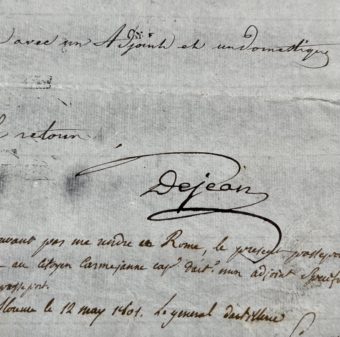 avec un Adjoint et un domestique
retour
Dejean
pas me rendre en Rome, le present passeport
au citoyen Carmejanne cap.^e d'art.^ie mon adjoint
passeport.
florence le 12 may 1801. Le general d'artillerie